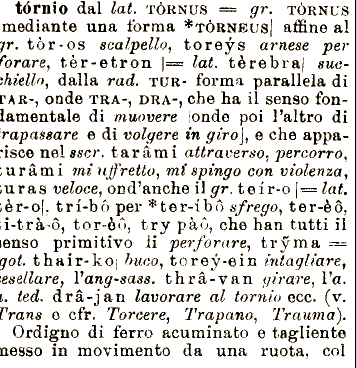 tórnio dal lat. TÒRNUS = gr. TÒRNUS
mediante una forma *TÒRNEUS| affine al
gr. tòr-os scalpello, toreýs arnese per
forare, tèr-etron |= lat. tèrebra| suc-
chiello, dalla rad. TUR- forma parallela di
TAR-, onde TRA-, DRA-, che ha il senso fon-
damentale di muovere |onde poi l'altro di
trapassare e di volgere in giro|, e che appa-
risce nel sscr. tarâmi attraverso, percorro,
turâmi mi affretto, mi spingo con violenza,
turas veloce, ond'anche il gr. teír-o |= lat.
tèr-o|. trí-bô per *ter-ibô sfrego, ter-èô,
ti-trà-ô, tor-èô, try pàô, che han tutti il
senso primitivo li perforare, trỹma =
got. thaír-ko| buco, toreý-ein intagliare,
cesellare, l'ang-sass. thrâ-van girare, l'a.
a. ted. drâ-jan lavorare al tornio ecc. (v.
Trans e cfr. Torcere, Trapano, Trauma).
Ordigno di ferro acuminato e tagliente
messo in movimento da una ruota, col